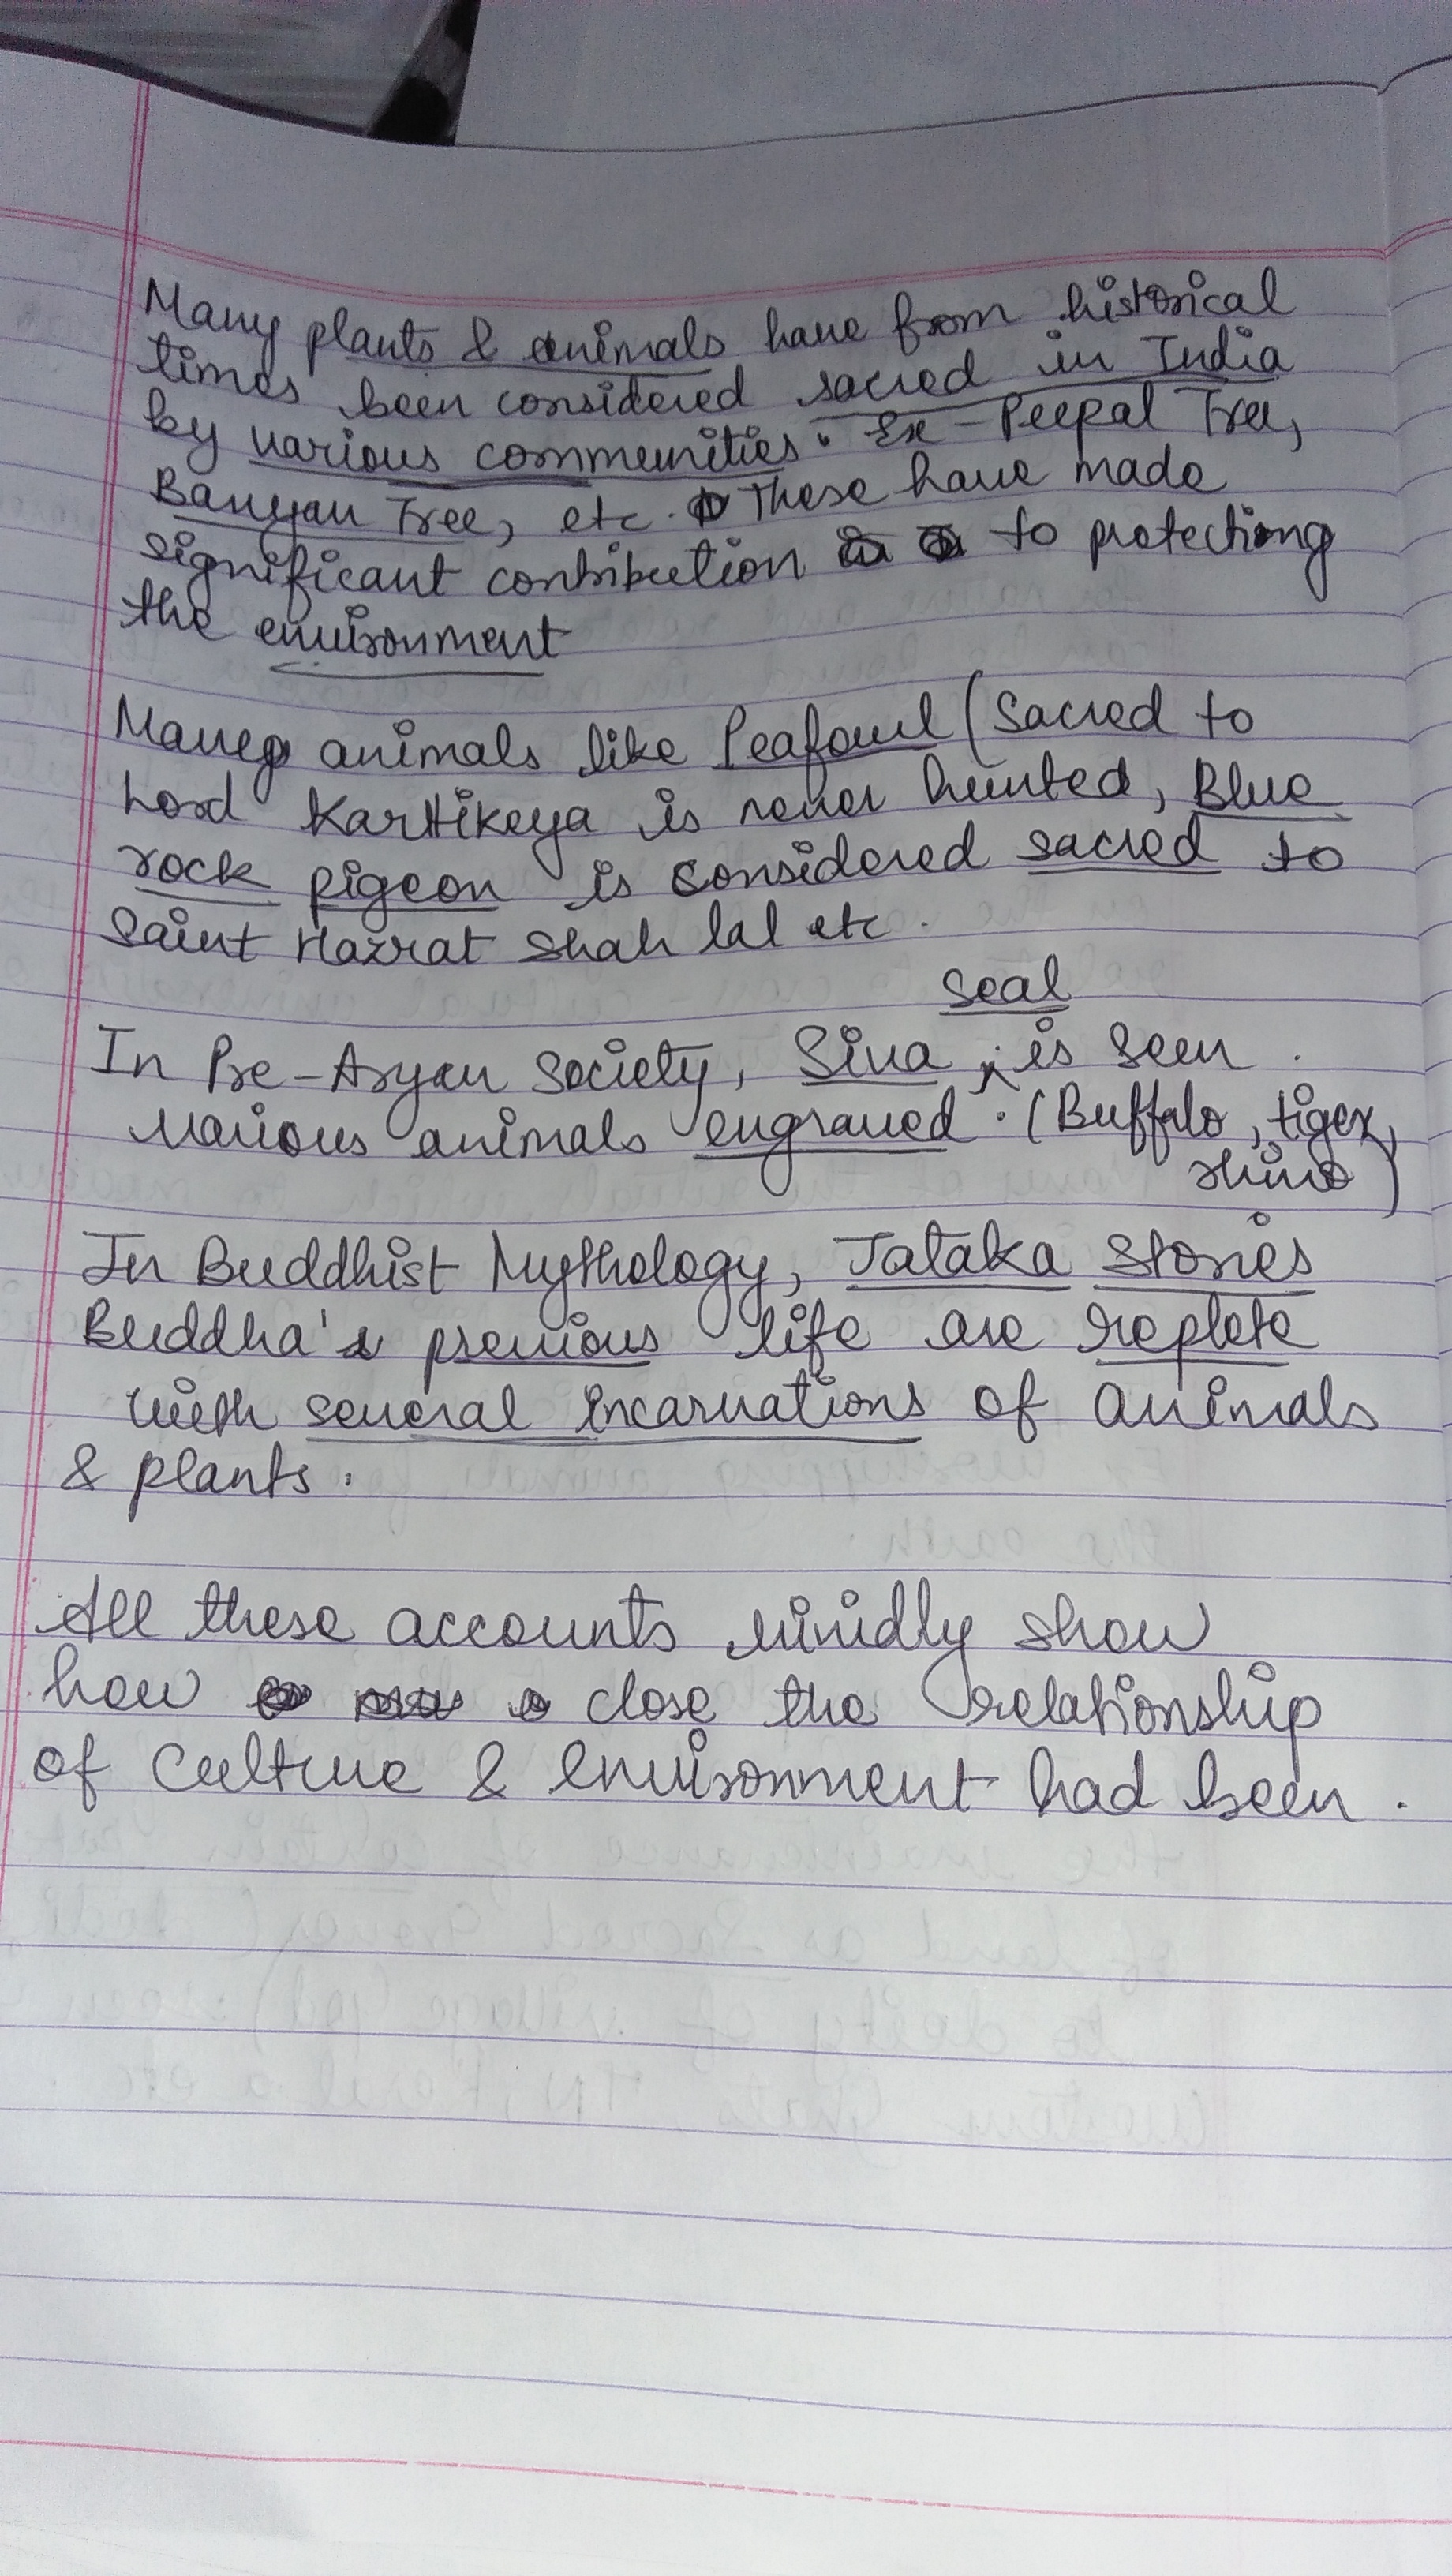 Many plants & animals have from historical
times been considered sacred in India
by various communities. Ex - Peepal Tree,
Banyan Tree, etc. These have made
significant contribution to protectiong
the environment
Many animals like Peafowl (Sacred to
Lord Kartikeya is never hunted, Blue
rock pigeon is considered sacred to
Saint Hazrat Shah lal etc.
seal
In Pre-Aryan Society, Siva is seen.
various animals engraved. (Buffalo, tiger,
rhino)
In Buddhist Mythology, Jataka Stories
Buddha's previous life are replete
with several incarnations of animals
& plants.
All these accounts vividly show
how close the relationship
of culture & environment had been.